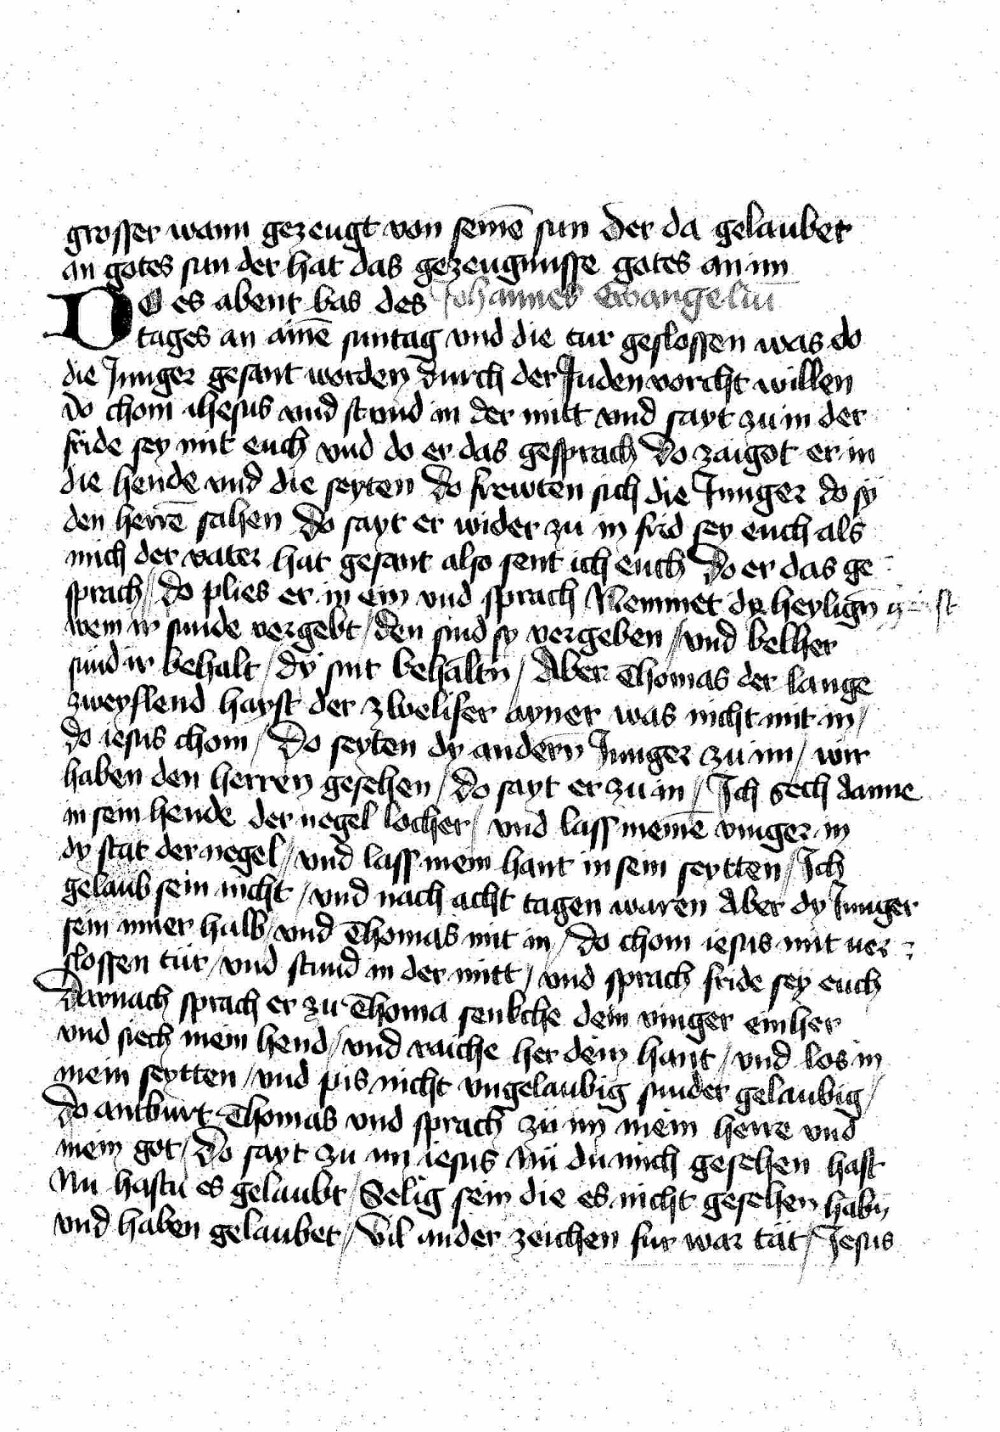 grosser wann gezeugt von seinē sun Der da gelaubet
an gotes sun der hat das gezeugnusse gotes an im
DO es abent bas des Johannes Ewangeliū
tages an ainē suntag vnd die tur geslossen was do
die Junger gesant worden durch der Juden vorcht willen
Do chom ihesus vnd stund in der mitt vnd sayt zu in der
fride sey mit euch vnd do er das gesprach Do zaigot er in
die hende vnd die seyten Do frewten sich die Junger do sy
den herrē sahen Do sayt er wider zu in frid sey euch als
mich der vater hat gesant also sent ich euch Do er das ge
sprach / do plies er in ein vnd sprach Nemmet dy heyligñ geist
wem ir sunde vergebt / den sind sy vergeben / vnd belher
sund ir behalt / dy sint behaltñ / Aber Thomas der lange
zweyflend hayst der zbelifer ayner was nicht mit in /
do iesus chom / Do seyten dy andern Junger zu im / wir
haben den herren gesehen / do sayt er zu in / Ich sech danne
in sein hende der negel locher / vnd lass meinē vinger in
dy stat der negel / vnd lass mein hant in sein seytten / Ich
gelaub sein nicht / vnd nach acht tagen waren Aber dy Junger
sein inner halb / vnd Thomas mit in / do chom iesus mit ver
slossen tür / vnd stund in der mitt / vnd sprach fride sey euch
Darnach sprach er zu Thoma senkche dein vinger einher
vnd siech mein hend / vnd raiche her dein hant / vnd los in
mein seytten / vnd pis nicht vngelaubig sunder gelaubig /
Do antburt Thomas vnd sprach zu im mein herre vnd
mein got / Do sayt zu im iesus Nü du mich gesehen hast
Nu hastu es gelaubt / Selig sein die es nicht gesehen habñ
vnd haben gelaubet / Vil ander zeichen fur war tät / Jesus